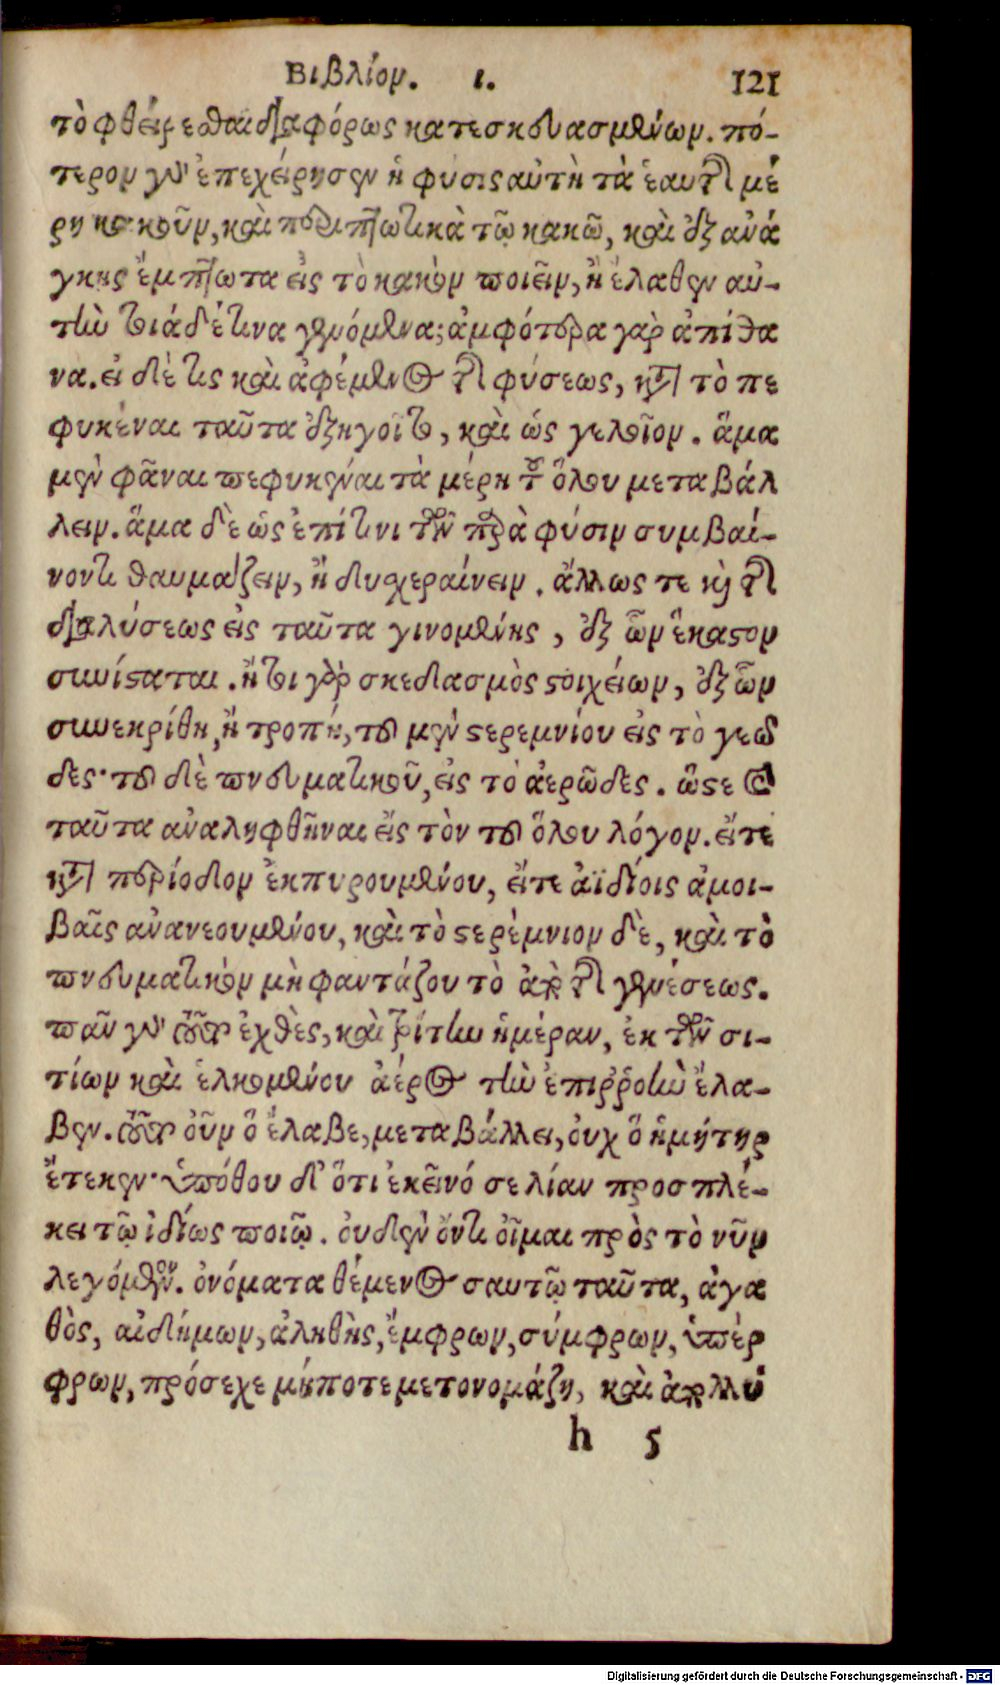 Βιβλίον. ι. 121
τὸ φθείρεσθαι διαφόρως κατεσκευασμένων. πό-
τερον γοῦν ἐπεχείρησεν ἡ φύσις αὐτὴ τὰ ἑαυτῆς μέ
ρη κακοῦν, καὶ περιπτωτικὰ τῷ κακῷ, καὶ ἐξ ἀνά
γκης ἔμπτωτα εἰς τὸ κακὸν ποιεῖν, ἢ ἔλαθεν αὐ-
τὴν τοιάδέ τινα γενόμενα; ἀμφότερα γὰρ ἀπίθα
να. εἰ δέ τις καὶ ἀφέμενος τῆς φύσεως, κατὰ τὸ πε
φυκέναι ταῦτα ἐξηγοῖτο, καὶ ὡς γελοῖον. ἅμα
μὲν φᾶναι πεφυκέναι τὰ μέρη τοῦ ὅλου μεταβάλ
λειν. ἅμα δὲ ὡς ἐπί τινι τῶν παρὰ φύσιν συμβαί-
νοντι θαυμάζειν, ἢ δυσχεραίνειν. ἄλλως τε καὶ τῆς
διαλύσεως εἰς ταῦτα γινομένης, ἐξ ὧν ἕκαστον
συνίσταται. ἤτοι γὰρ σκεδασμὸς στοιχείων, ἐξ ὧν
συνεκρίθη, ἢ τροπή, τοῦ μὲν στερεμνίου εἰς τὸ γεῶ
δες· τοῦ δὲ πνευματικοῦ, εἰς τὸ ἀερῶδες. ὥστε καὶ
ταῦτα ἀναληφθῆναι εἰς τὸν τοῦ ὅλου λόγον. εἴτε
κατὰ περίοδον ἐκπυρουμένου, εἴτε ἀϊδίοις ἀμοι-
βαῖς ἀνανεουμένου, καὶ τὸ στερέμνιον δὲ, καὶ τὸ
πνευματικὸν μὴ φαντάζου τὸ ἀπὸ τῆς γενέσεως.
πᾶν γοῦν τοῦτο ἐχθὲς, καὶ τρίτην ἡμέραν, ἐκ τῶν σι-
τίων καὶ ἑλκομένου ἀέρος τὴν ἐπιῤῥοὴν ἔλα-
βεν. τοῦτο οὖν ὃ ἔλαβε, μεταβάλλει, οὐχ ὃ ἡ μήτηρ
ἔτεκεν· ὑπόθου δ' ὅτι ἐκεῖνό σε λίαν προσπλέ-
κει τῷ ἰδίως ποιῷ. οὐδὲν ὄντι οἶμαι πρὸς τὸ νῦν
λεγόμενον. ὀνόματα θέμενος σαυτῷ ταῦτα, ἀγα
θὸς, αἰδήμων, ἀληθὴς, ἔμφρων, σύμφρων, ὑπέρ
φρων, πρόσεχε μήποτε μετονομάζῃ, καὶ ἀπολλύ
h 5
Digitalisierung gefördert durch die Deutsche Forschungsgemeinschaft - DFG